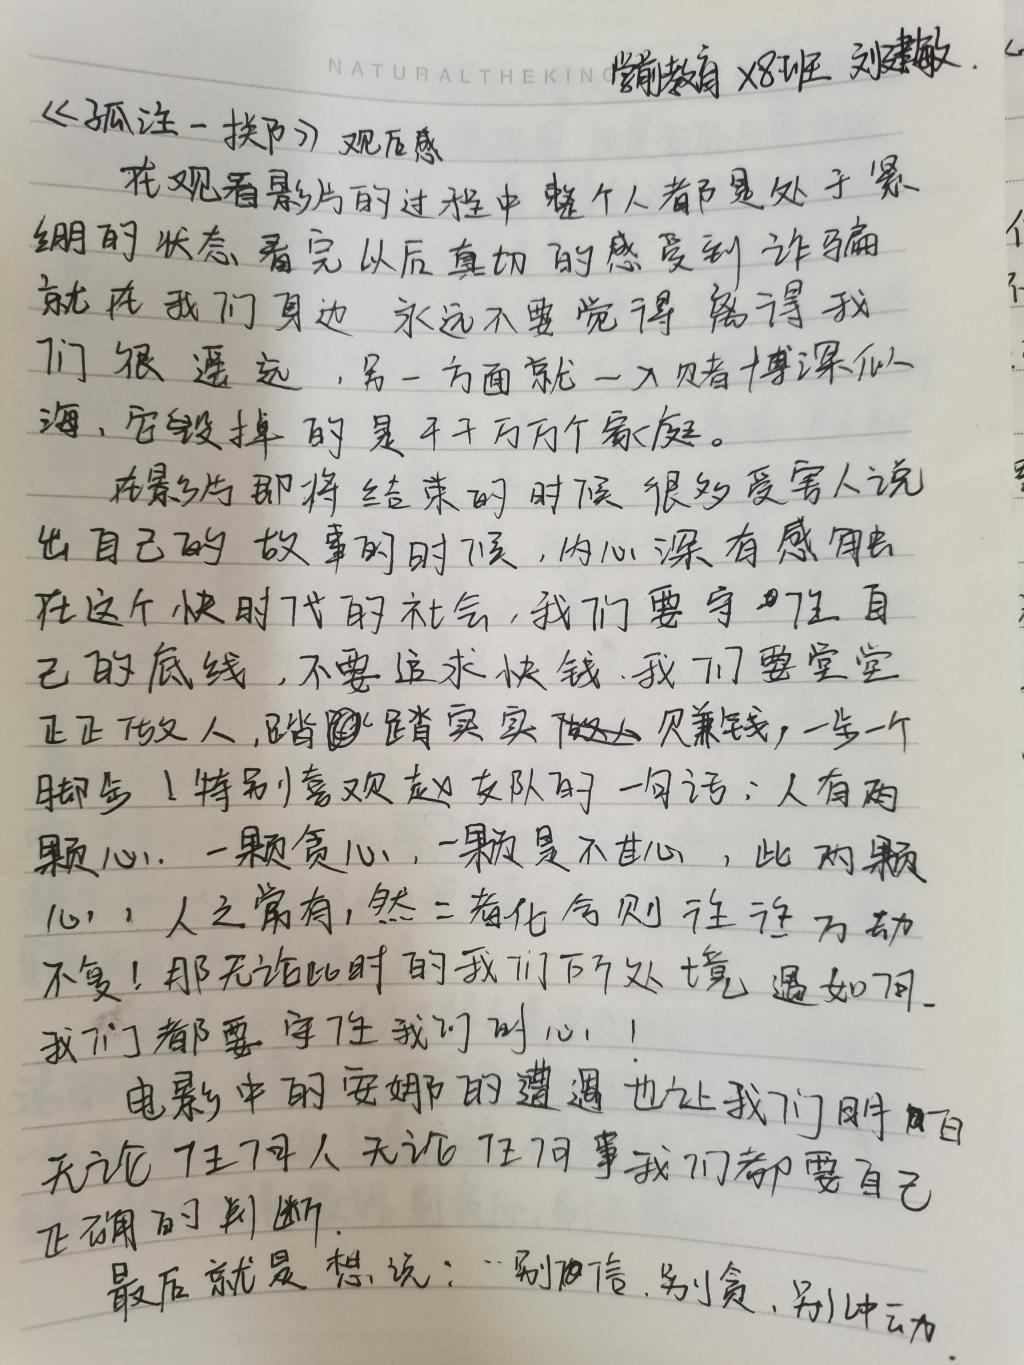 NATURALTHEKING
学前教育 x8班 刘建敏.
《孤注一掷》观后感
在观看影片的过程中整个人都是处于紧
绷的状态 看完以后真切的感受到诈骗
就在我们身边 永远不要觉得离得我
们很遥远,另一方面就一入赌博深似
海、它毁掉的是千千万万个家庭。
在影片即将结束的时候很多受害人说
出自己的故事的时候,内心深有感触
在这个快时代的社会,我们要守住自
己的底线,不要追求快钱.我们要堂堂
正正做人,踏踏实实赚钱,一步一个
脚步!特别喜欢赵女队的一句话:人有两
颗心.一颗贪心,一颗是不甘心,此两颗
心,人之常有,然二者化合则往往万劫
不复!那无论此时的我们所处境遇如何
我们都要守住我们的心!
电影中的安娜的遭遇也让我们明白
无论任何人无论任何事我们都要自己
正确的判断.
最后就是想说:"别信、别贪、别冲动